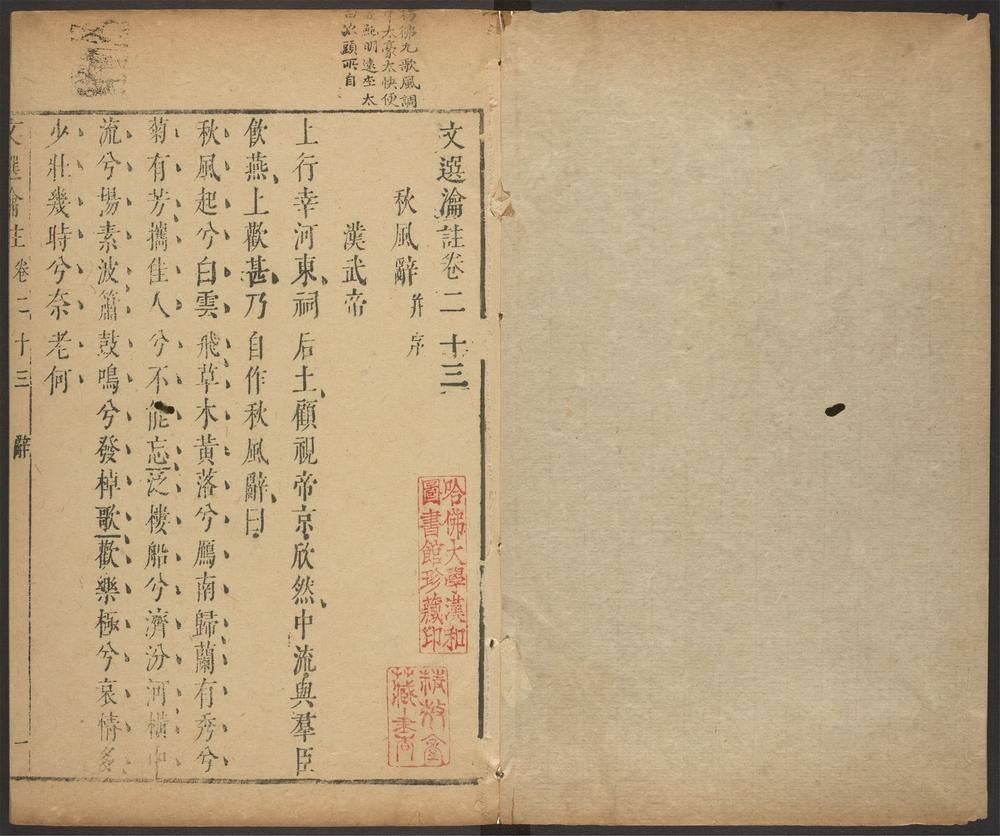 文選瀹註卷二十三
秋風辭并序
漢武帝
上行幸河東祠后土顧視帝京欣然中流與羣臣
飲燕上歡甚乃自作秋風辭曰
秋風起兮白雲飛草木黃落兮鴈南歸蘭有秀兮
菊有芳攜佳人兮不能忘泛樓船兮濟汾河橫中
流兮揚素波簫鼓鳴兮發棹歌歡樂極兮哀情多
少壯幾時兮奈老何
文選瀹註卷二十三 辭 一
彿九歌風調
太豪太快便
鮑明遠至太
頭所自
哈佛大學漢和
圖書館珍藏印
藏書